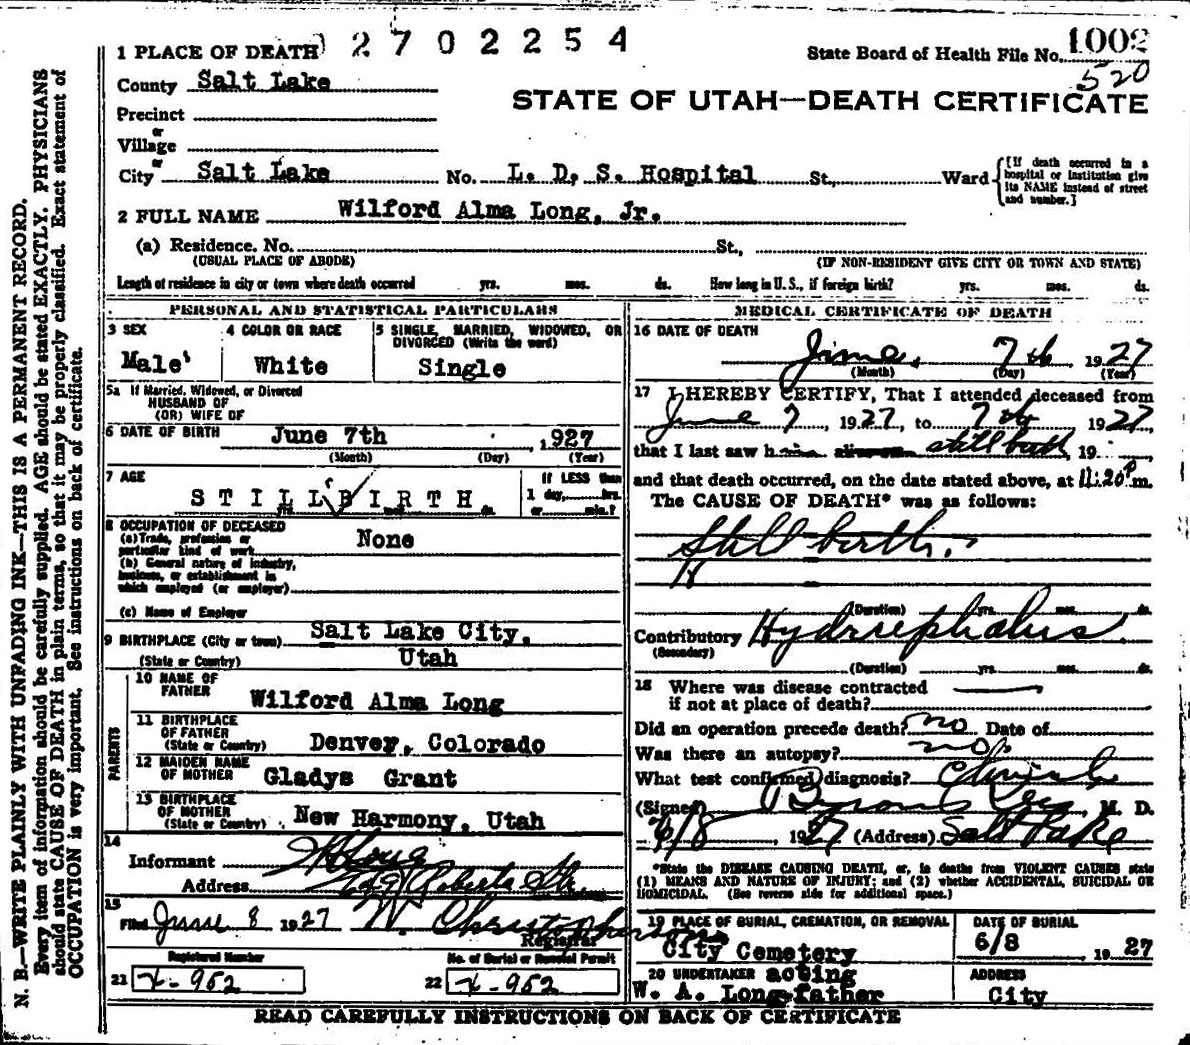 2702254
State Board of Health File No. 1002
520
1 PLACE OF DEATH
County Salt Lake
STATE OF UTAH—DEATH CERTIFICATE
Precinct
or
Village
or
City Salt Lake No. L. D. S. Hospital St., Ward
[If death occurred in a hospital or institution give its NAME instead of street and number.]
2 FULL NAME Wilford Alma Long, Jr.
(a) Residence. No. St.,
(USUAL PLACE OF ABODE) (IF NON-RESIDENT GIVE CITY OR TOWN AND STATE)
Length of residence in city or town where death occurred yrs. mos. ds. How long in U. S., if foreign birth? yrs. mos. ds.
PERSONAL AND STATISTICAL PARTICULARS
3 SEX
Male
4 COLOR OR RACE
White
5 SINGLE, MARRIED, WIDOWED, OR
DIVORCED (Write the word)
Single
5a If Married, Widowed, or Divorced
HUSBAND OF
(OR) WIFE OF
6 DATE OF BIRTH June 7th , 1927
(Month) (Day) (Year)
7 AGE
STILLBIRTH
If LESS than
1 day, hrs.
or min.?
8 OCCUPATION OF DECEASED
(a) Trade, profession or
particular kind of work None
(b) General nature of industry,
business, or establishment in
which employed (or employer)
(c) Name of Employer
9 BIRTHPLACE (City or town) Salt Lake City,
(State or Country) Utah
PARENTS
10 NAME OF
FATHER Wilford Alma Long
11 BIRTHPLACE
OF FATHER
(State or Country) Denver, Colorado
12 MAIDEN NAME
OF MOTHER Gladys Grant
13 BIRTHPLACE
OF MOTHER
(State or Country) New Harmony, Utah
14
Informant W A Long
Address Roberts
15
Filed June 8 1927 W. Christopherson
Registrar
Registered Number
21 X-952
No. of Burial or Removal Permit
22 X-952
MEDICAL CERTIFICATE OF DEATH
16 DATE OF DEATH
June 7th 1927
(Month) (Day) (Year)
17 I HEREBY CERTIFY, That I attended deceased from
June 7, 1927, to 7th 1927,
that I last saw h still birth, 19 ,
and that death occurred, on the date stated above, at 11:20 P m.
The CAUSE OF DEATH* was as follows:
Still birth.
(Duration) yrs. mos. ds.
Contributory Hydrocephalus
(Secondary)
(Duration) yrs mos. ds.
18 Where was disease contracted
if not at place of death?
Did an operation precede death? no Date of
Was there an autopsy? no
What test confirmed diagnosis?
(Signed) Byron M. D.
6/8, 1927 (Address) Salt Lake
*State the DISEASE CAUSING DEATH, or, in deaths from VIOLENT CAUSES state
(1) MEANS AND NATURE OF INJURY; and (2) whether ACCIDENTAL, SUICIDAL OR
HOMICIDAL. (See reverse side for additional space.)
19 PLACE OF BURIAL, CREMATION, OR REMOVAL
City Cemetery
DATE OF BURIAL
6/8 1927
20 UNDERTAKER acting
W. A. Long-father
ADDRESS
City
READ CAREFULLY INSTRUCTIONS ON BACK OF CERTIFICATE
N. B.—WRITE PLAINLY WITH UNFADING INK—THIS IS A PERMANENT RECORD.
Every item of information should be carefully supplied. AGE should be stated EXACTLY. PHYSICIANS
should state CAUSE OF DEATH in plain terms, so that it may be properly classified. Exact statement of
OCCUPATION is very important. See instructions on back of certificate.